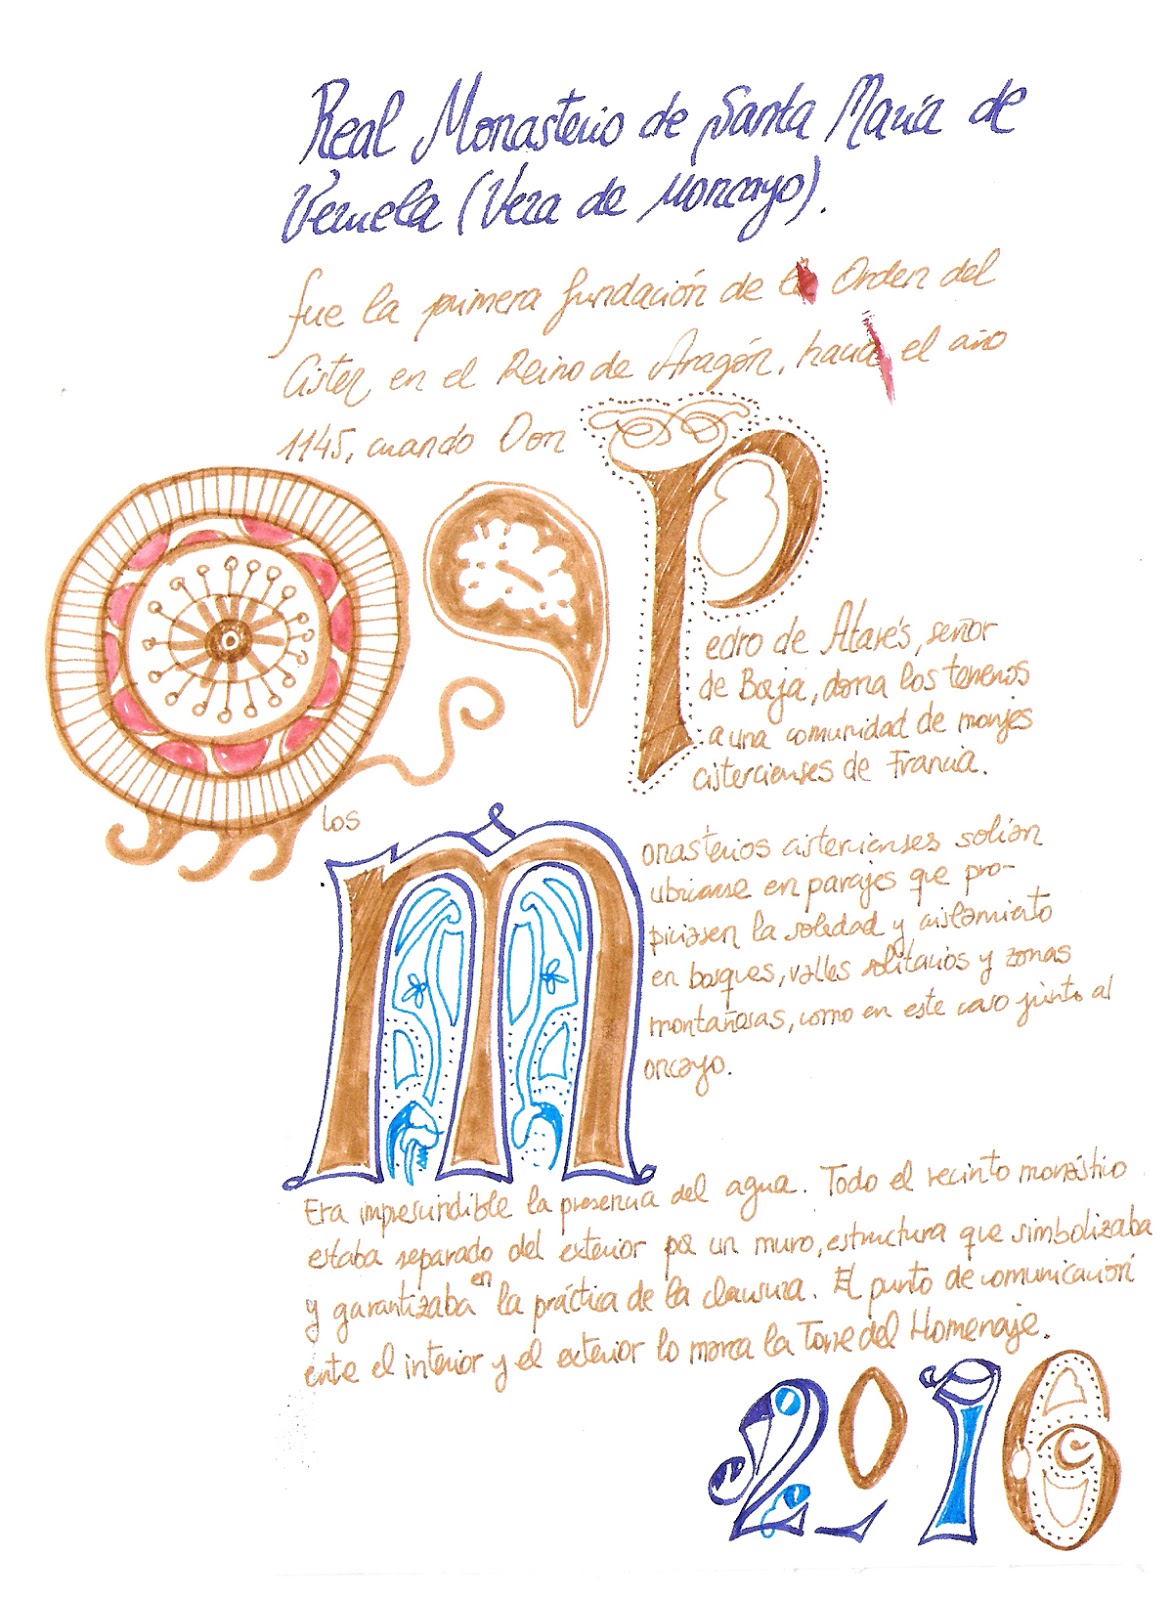 Real Monasterio de Santa María de
Veruela (Vera de Moncayo).
fue la primera fundación de la Orden del
Cister, en el Reino de Aragón, hacia el año
1145, cuando Don
P
edro de Atarés, señor
de Borja, dona los terrenos
a una comunidad de monjes
cistercienses de Francia.
los
M
onasterios cistercienses solían
ubicarse en parajes que pro-
piciasen la soledad y aislamiento
en bosques, valles solitarios y zonas
montañosas, como en este caso junto al
oncayo.
Era imprescindible la presencia del agua. Todo el recinto monástico
estaba separado del exterior por un muro, estructura que simbolizaba
y garantizaba en la práctica de la clausura. El punto de comunicación
entre el interior y el exterior lo marca la Torre del Homenaje.
2016